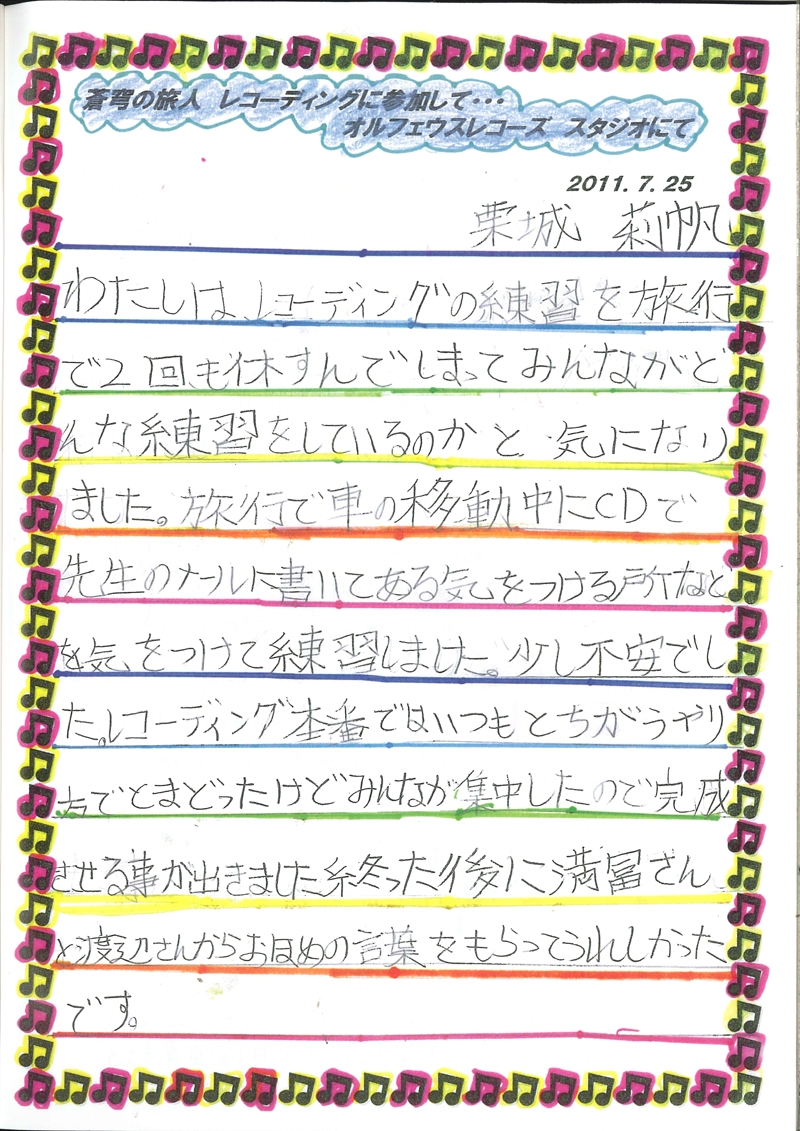 蒼穹の旅人 レコーディングに参加して・・・
オルフェウスレコーズ スタジオにて
2011. 7. 25
栗城 莉帆
わたしは、レコーディングの練習を旅行
で2回も休すんでしまってみんながど
んな練習をしているのかと気になり
ました。旅行で車の移動中にCDで
先生のメールに書いてある気をつける所など
を気をつけて練習しました。少し不安でし
た。レコーディング本番ではいつもとちがうやり
方でとまどったけどみんなが集中したので完成
させる事が出きました終った後に満冨さん
と渡辺さんからおほめの言葉をもらってうれしかった
です。